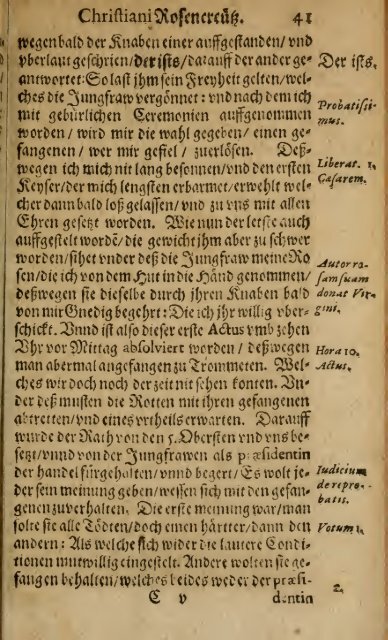 Chriſtiani Roſencreütz. 41
wegen bald der Knaben einer auffgeſtanden/ vnd
vberlaut geſchrien/der iſts/darauff der ander ge⸗
antwortet: So laſt jhm ſein Freyheit gelten/wel⸗
ches die Jungfraw vergönnet: vnd nach dem ich
mit gebürlichen Ceremonien auffgenommen
worden/ wird mir die wahl gegeben/ einen ge⸗
fangenen/ wer mir gefiel / zuerlöſen. Deß⸗
wegen ich mich nit lang beſonnen/vnd den erſten
Keyſer/der mich lengſten erbarmet/erwehlt wel⸗
cher dann bald loß gelaſſen/vnd zu vns mit allen
Ehren geſetzt worden. Wie nun der letſte auch
auffgeſtelt wordẽ/ die gewicht jhm aber zu ſchwer
worden/ſihet vnder deß die Jungfraw meine Ro⸗
ſen/die ich von dem Hut in die Händ genommen/
deßwegen ſie dieſelbe durch jhren Knaben bald
von mir Gnedig begehrt: Die ich jhr willig vber⸗
ſchickt. Vnnd iſt alſo dieſer erſte Actus vmb zehen
Vhr vor Mittag abſolviert worden/ deßwegen
man abermal angefangen zu Trommeten. Wel⸗
ches wir doch noch der zeit nit ſehen konten. Vn⸗
der deß muſten die Rotten mit jhren gefangenen
abtretten/vnd eines vrtheils erwarten. Darauff
wurde der Rath von den 5. Oberſten vnd vns be⸗
ſetzt/vnnd von der Jungfrawen als præſidentin
der handel fürgehalten/vnnd begert/ Es wolt je⸗
der ſein meinung geben/weſſen ſich mit den gefan⸗
genen zuverhalten. Die erſte meinung war/man
ſolte ſie alle Tödten/doch einen härtter/dann den
andern: Als welche ſich wider die lautere Condi⸗
tionen mutwillig eingeſtelt. Andere wolten ſie ge⸗
fangen behalten/welches beides weder der præſi⸗
C v dentin
Der iſts.
Probatiſſi-
mus.
Liberat. 1.
Caſarem.
Autor ro-
ſam ſuam
donat Vir-
gini.
Hora 10.
Actus.
Iudicium
de repro-
batis.
Votum 1.
2.